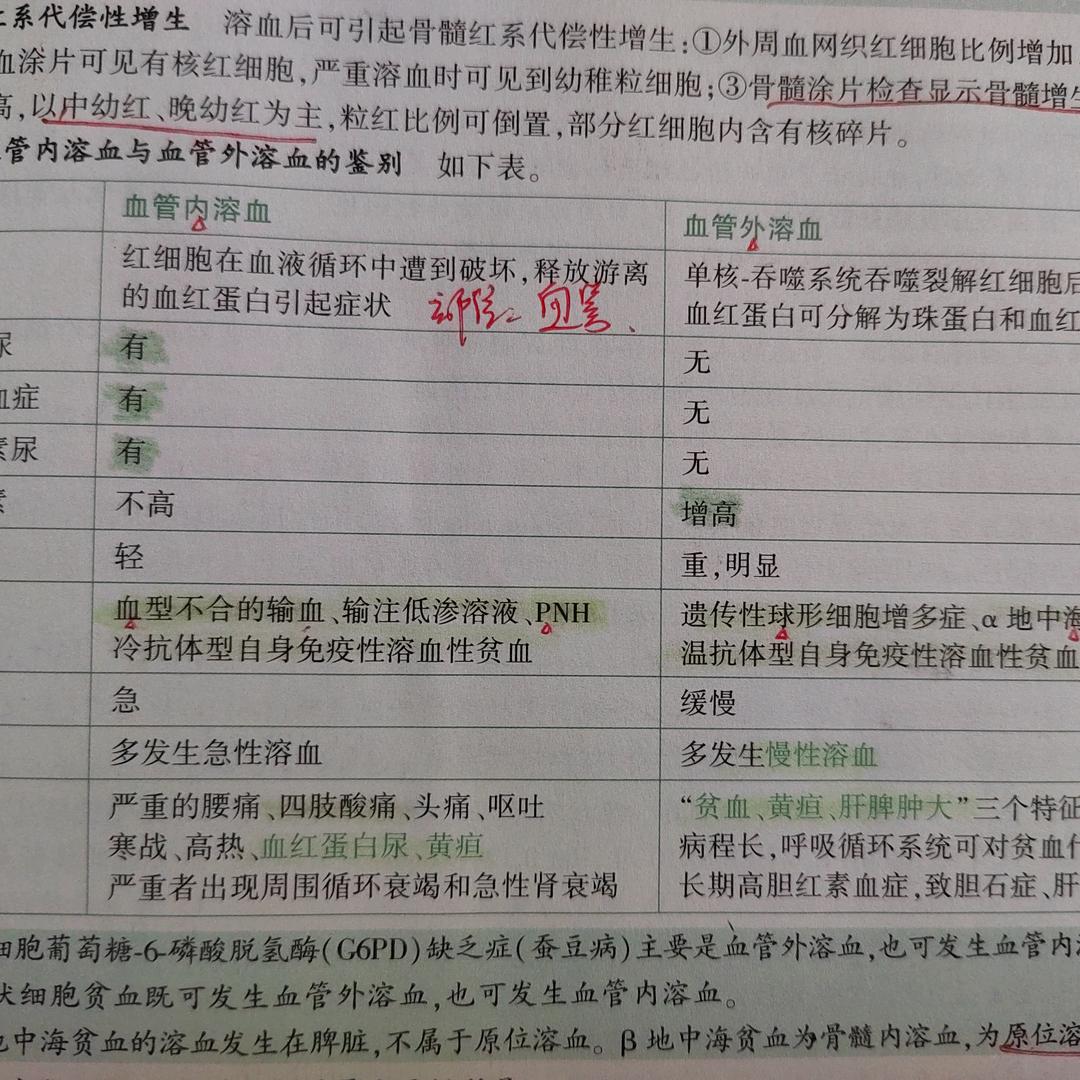 系代偿性增生 溶血后可引起骨髓红系代偿性增生:①外周血网织红细胞比例增加
血涂片可见有核红细胞,严重溶血时可见到幼稚粒细胞;③骨髓涂片检查显示骨髓增生
高,以中幼红、晚幼红为主,粒红比例可倒置,部分红细胞内含有核碎片。
管内溶血与血管外溶血的鉴别 如下表。
血管内溶血 血管外溶血
红细胞在血液循环中遭到破坏,释放游离 单核-吞噬系统吞噬裂解红细胞后
的血红蛋白引起症状 血红蛋白可分解为珠蛋白和血红
尿 有 无
血症 有 无
素尿 有 无
素 不高 增高
轻 重,明显
血型不合的输血、输注低渗溶液、PNH 遗传性球形细胞增多症、α地中海
冷抗体型自身免疫性溶血性贫血 温抗体型自身免疫性溶血性贫血
急 缓慢
多发生急性溶血 多发生慢性溶血
严重的腰痛、四肢酸痛、头痛、呕吐 “贫血、黄疸、肝脾肿大”三个特征
寒战、高热、血红蛋白尿、黄疸 病程长,呼吸循环系统可对贫血代
严重者出现周围循环衰竭和急性肾衰竭 长期高胆红素血症,致胆石症、肝
细胞葡萄糖-6-磷酸脱氢酶(G6PD)缺乏症(蚕豆病)主要是血管外溶血,也可发生血管内溶
状细胞贫血既可发生血管外溶血,也可发生血管内溶血。
地中海贫血的溶血发生在脾脏,不属于原位溶血。β地中海贫血为骨髓内溶血,为原位溶